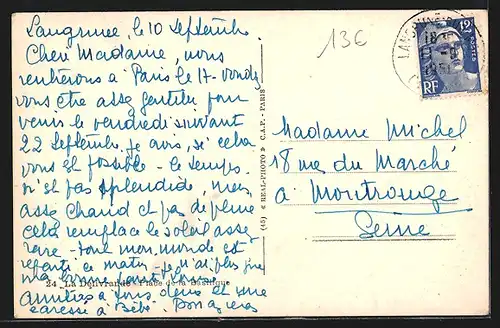 Langrune, le 10 Septembre
Cher Madame, nous
rentrerons à Paris le 17 -
vous être assez gentille pour
venir le vendredi suivant
22 Septembre je vais, si cela
vous est possible - le temps
n'est pas splendide, mais
assez chaud et pas de pluie
cela remplace le soleil assez
rare - tout mon monde est
reparti ce matin - je n'ai plus que
ma
amitiés à vous deux et une
caresse à Bébé. Bon
24 La Délivrande - Place de la Basilique
(45) « REAL-PHOTO » C.A.P. - PARIS
13€
LANGRUNE
18
1951
12F
POSTES
RF
Madame Michel
18 rue du Marché
à Montrouge
Seine